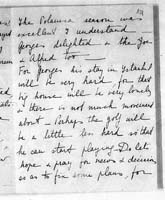 The Polanisa season was
excellent I understand
Georges delighted & the You
& Alfred too —
For Georges his stay in Istanbul
will be very hard for that
his house will be very lonely
& there is not much movement
about — Perhaps the golf will
be a little less hard so that he
can start playing. Do let's
hope & pray for news & decision
as to fix some plans, for